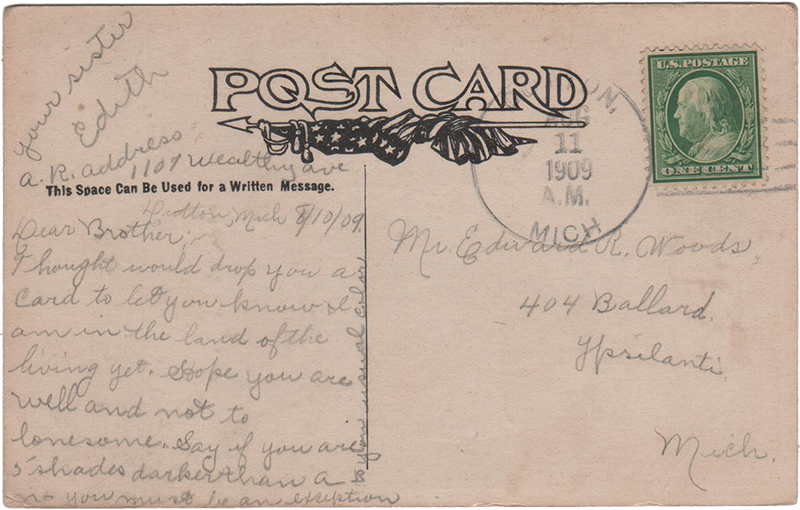 your sister
Edith
a. R. address
1107 Wealthy ave
POST CARD
This Space Can Be Used for a Written Message.
Dutton, Mich 8/10/09.
Dear Brother;
Thought would drop you a
Card to let you know I
am in the land of the
living yet. Hope you are
well and not to
lonesome. Say if you are
5 shades darker than a
you must be an exception
to your usual color
ON,
AUG
11
1909
A.M.
MICH
U.S. POSTAGE
ONE CENT
Mr. Edward R. Woods,
404 Ballard.
Ypsilanti
Mich.